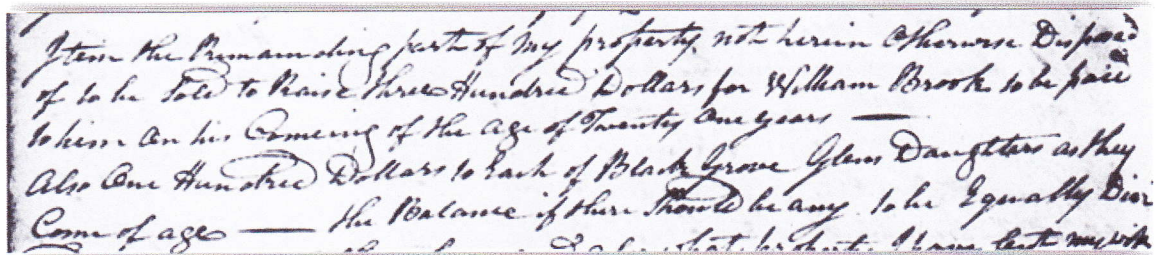 Item the Remainding part of my property not herein Otherwise Disposed
of to be Sold to Raise three Hundred Dollars for William Brook to be paid
to him on his Comeing of the age of Twenty One years —
Also One Hundred Dollars to Each of Black Grove Glens Daughters as they
Come of age — the Balance if there Should be any to be Equally Divi
what property I have left my wife